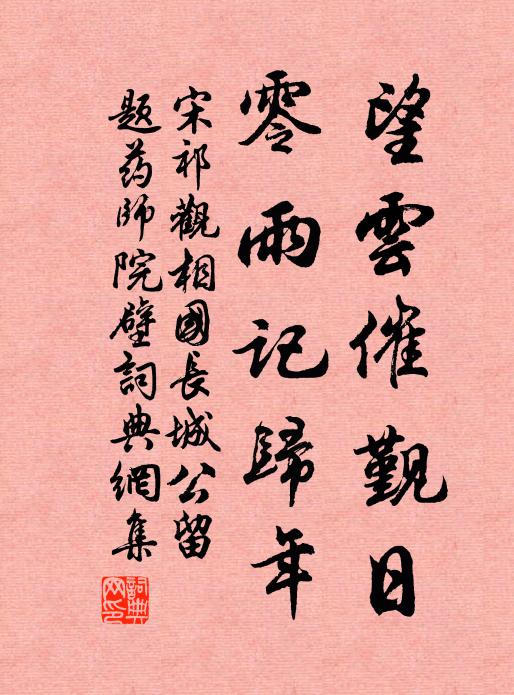 望雲催觐日
零雨记歸年
宋祁觀相國長城公留
题药師院壁詞典網集
詞典网印